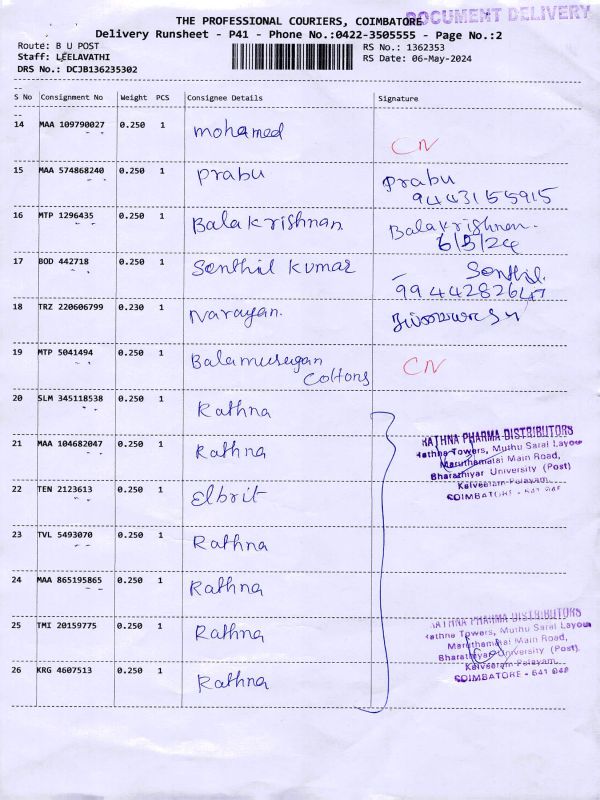 DOCUMENT DELIVERY
THE PROFESSIONAL COURIERS, COIMBATORE
Delivery Runsheet - P41 - Phone No.:0422-3505555 - Page No.:2
Route: B U POST
RS No.: 1362353
Staff: LEELAVATHI
RS Date: 06-May-2024
DRS No.: DCJB136235302
S No Consignment No Weight PCS Consignee Details Signature
14 MAA 109790027 0.250 1 mohamed CN
15 MAA 574868240 0.250 1 prabu Prabu
9443155915
16 MTP 1296435 0.250 1 Balakrishnan Balakrishnan.
6/5/24
17 BOD 442718 0.250 1 Senthil kumar Senthil.
9944282647
18 TRZ 220606799 0.230 1 Narayan.
19 MTP 5041494 0.250 1 Balamurugan CN
Cottons
20 SLM 345118538 0.250 1 Rathna
21 MAA 104682047 0.250 1 Rathna
RATHNA PHARMA DISTRIBUTORS
Rathna Towers, Muthu Saral Layou
Maruthamalai Main Road,
Bharathiyar University (Post)
Kalveeram Palayam,
COIMBATORE - 641 046
22 TEN 2123613 0.250 1 Elbrit
23 TVL 5493070 0.250 1 Rathna
24 MAA 865195865 0.250 1 Rathna
25 TMI 20159775 0.250 1 Rathna
RATHNA PHARMA DISTRIBUTORS
Rathna Towers, Muthu Saral Layou
Maruthamalai Main Road,
Bharathiyar University (Post)
Kalveeram Palayam,
COIMBATORE - 641 046
26 KRG 4607513 0.250 1 Rathna